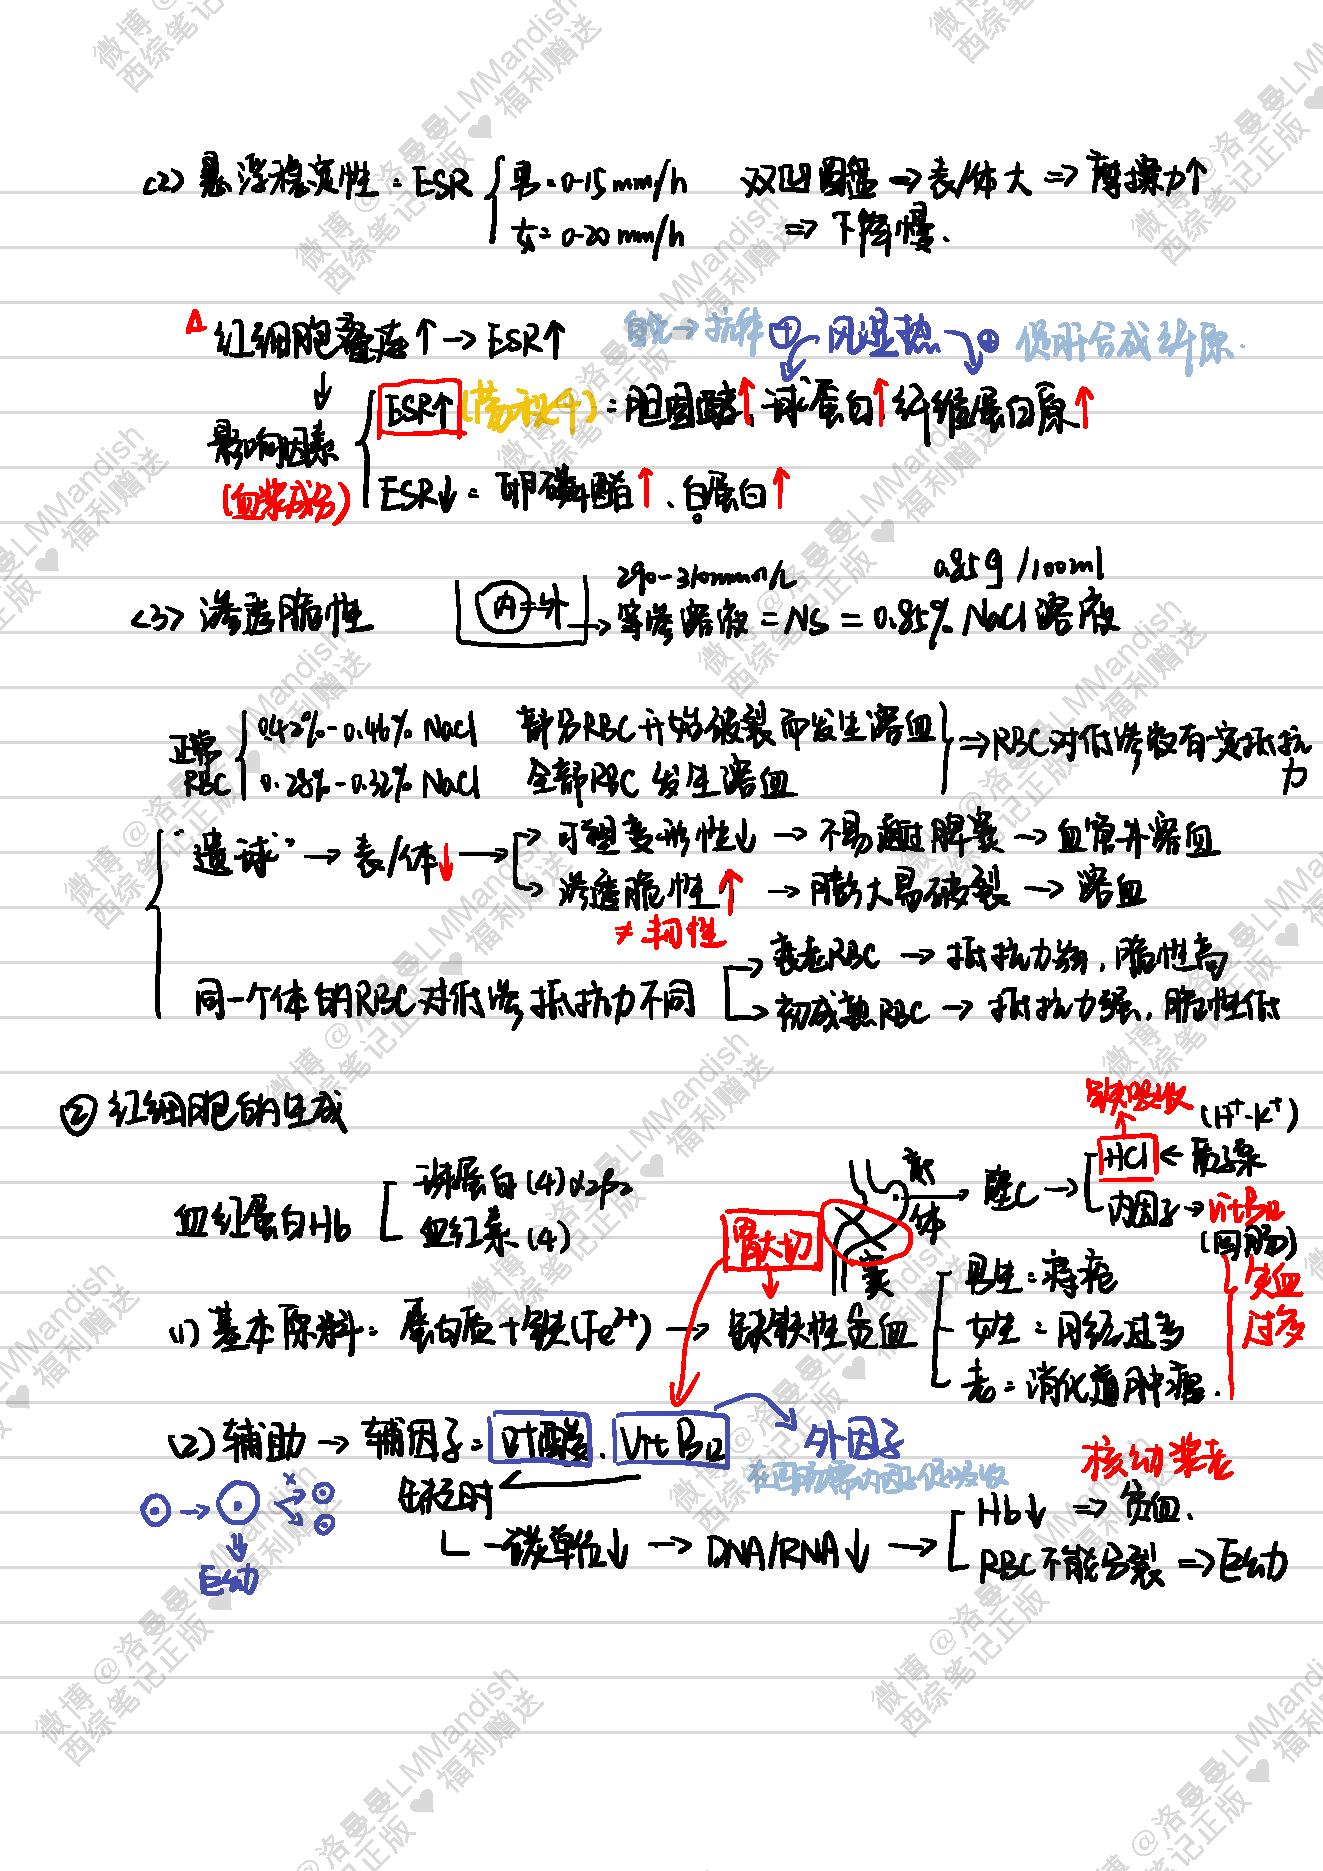 (2) 悬浮稳定性：ESR { 男：0-15mm/h 双凹圆盘 => 表/体大 => 摩擦力↑
女：0-20mm/h => 下降慢.
△ 红细胞叠连↑ → ESR↑ 自免 → 抗体 ⊕ 风湿热 ⊕ 促肝合成纤原.
影响因素 { ESR↑ = 胆固醇↑、球蛋白↑ 纤维蛋白原↑
(血浆成分) ESR↓ = 卵磷脂↑、白蛋白↑
290-310mmol/L 0.85g/100ml
(3) 渗透脆性 内=外 → 等渗溶液 = NS = 0.85% NaCl 溶液
正常RBC { 0.42%-0.46% NaCl 部分RBC开始破裂而发生溶血 } => RBC对低渗液有一定抵抗力
0.28%-0.32% NaCl 全部RBC发生溶血
"遗球" → 表/体↓ → 可塑变形性↓ → 不易通过脾窦 → 血管外溶血
渗透脆性↑ → 膨大易破裂 → 溶血
≠ 韧性
同一个体的RBC对低渗抵抗力不同 衰老RBC → 抵抗力弱，脆性高
初成熟RBC → 抵抗力强，脆性低
② 红细胞的生成
铁吸收 (H⁺-K⁺)
血红蛋白Hb [ 珠蛋白(4) α2β2
血红素(4)
胃大切 体 窦 壁C → HCl ← 质子泵
内因子 → VitB12
(回肠)
(1) 基本原料：蛋白质＋铁(Fe²⁺) → 缺铁性贫血 男生：痔疮
女生：月经过多
老：消化道肿瘤.
失血过多
(2) 辅助 → 辅因子：叶酸、Vit B12 外因子
在回肠需内因子促吸收
缺乏时
一碳单位↓ → DNA/RNA↓ → Hb↓ => 贫血.
RBC不能分裂 => 巨幼
核幼浆老
巨幼
微博@洛曼曼LMMandish
西综笔记正版♥福利赠送